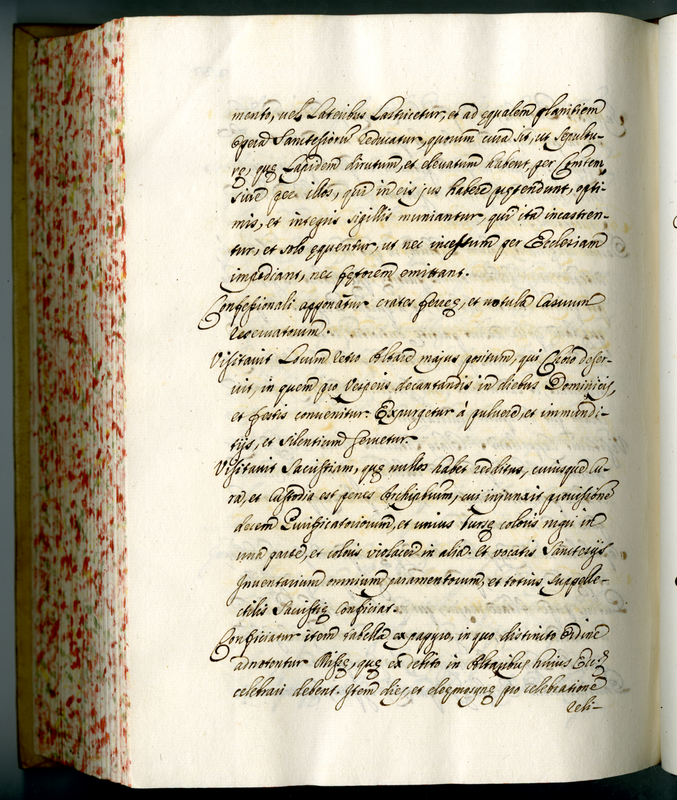 mento, uel Lateribus Lastricetur, et ad equalem planitiem
Opera Sanctesiorum reducatur, quorum cura sit, ut sepultu-
rę, quę Lapidem dirutum, et eleuatum habent, per
siue per illos, qui in eis jus habere prętendunt, opti-
mis, et integris sigillis muniantur, qui ita incastren-
tur, et solo equentur, ut nec incessum per Ecclesiam
impediant, nec fętorem emittant.
Confessionali apponatur crates ferreę, et notula Casuum
reseruatorum.
Visitauit Locum retro Altare majus positum, qui Choro deser-
uit, in quem pro Vesperis decantandis in diebus Dominicis,
et festis conuenitur. Expurgetur à puluere, et immundi-
tijs, et silentium seruetur.
Visitauit Sacristiam, quę nullos habet redditus, cuiusque cu-
ra, et custodia est penes Archipbrum, cui injunxit prouisione
decem Purificatoriorum, et unius bursę coloris nigri in
una parte, et coloris violacei in alia. Et vocatis Sanctesijs
Inuentarium omnium paramentorum, et totius suppelle-
ctilis Sacristię conficiat.
Conficiatur item tabella ex papyro, in quo distincto ordine
adnotentur Missę, quę ex debito in Altaribus huius Ecclę
celebrari debent. Item dies, et eleęmosynę pro celebratione
reli-